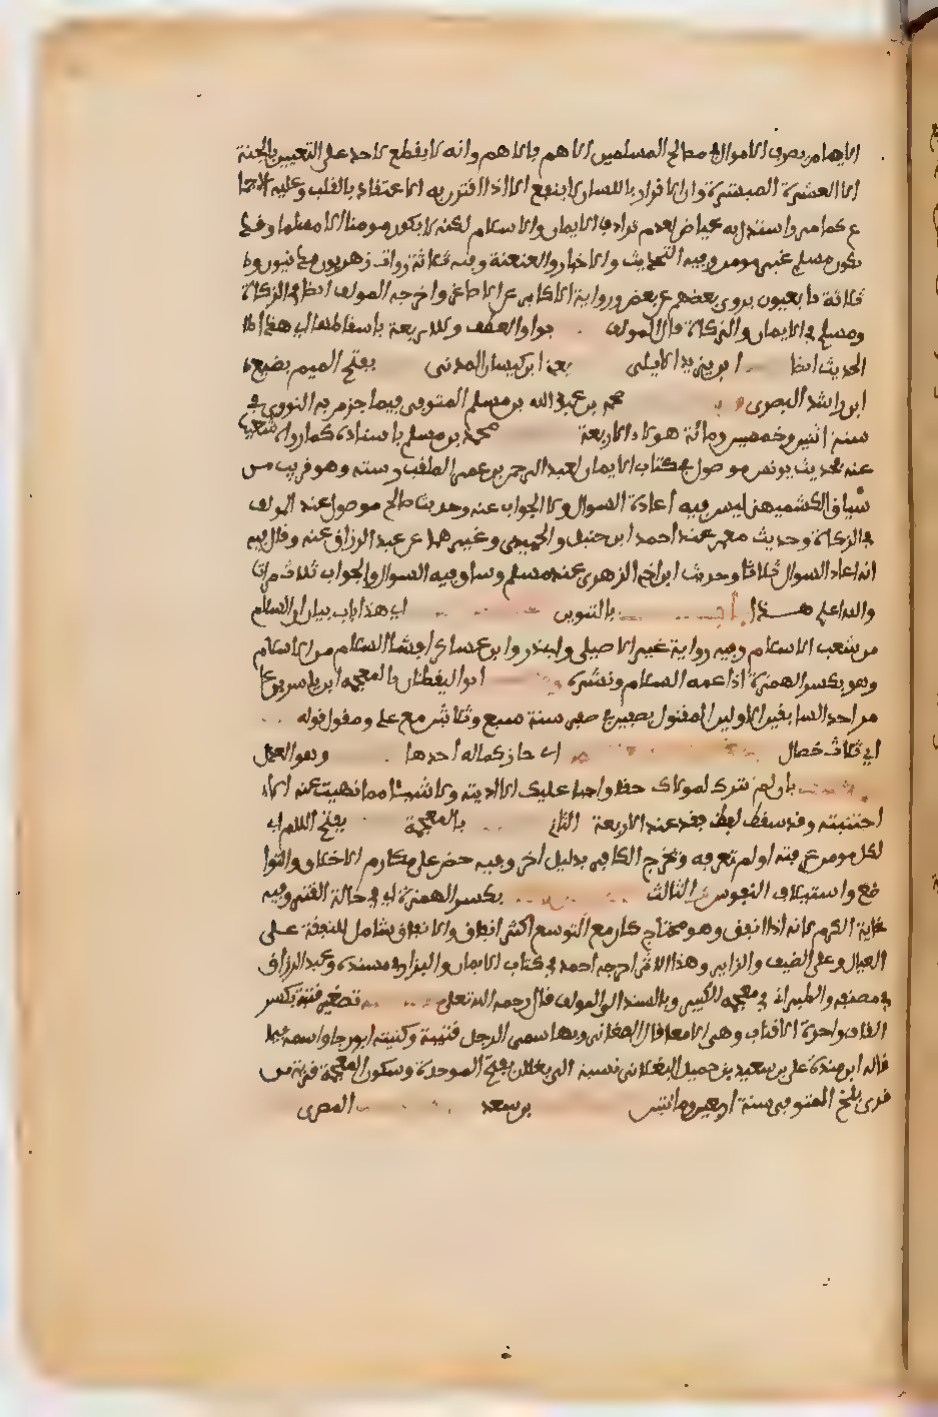 الامام يصرف الاموال في مصالح المسلمين الاهم بالاهم وانه لا يقطع لاحد على التعيين بالجنة
الا العشرة المبشرة وان الاقرار باللسان لا ينفع الا اذا اقترن به الاعتقاد بالقلب وعليه الاجما
ع كما مر واستدل به عياض لعدم ترادف الايمان والاسلام لكنه لا يكون مومنا الا مسلما وقد
يكون مسلم غير مومن وفيه التحديث والاخبار والعنعنة وفيه ثلاثة رواة زهريون مدنيون و
ثلاثة تابعيون يروي بعضهم عن بعض ورواية الاكابر عن الاصاغر واخرجه المولف ايضا في الزكاة
ومسلم في الايمان والزكاة قال المولف بواو العطف وللاربعة باسقاطها اي هذا
الحديث ايضا ابن يزيد الايلي يعني ابن كيسان المدني بفتح الميم
ابن راشد البصري محمد بن عبد الله بن مسلم المتوفى فيما جزم به النووي في
سنة اثنين وخمسين ومائة هولاء الاربعة محمد بن مسلم باسناده كما رواه شعيب
عنه فحديث يونس موصول في كتاب الايمان لعبد الرحمن بن عمر الملقب رسته وهو قريب من
سياق الكشميهني ليس فيه اعادة السوال ولا الجواب عنه وحديث صالح موصول عند المولف
في الزكاة وحديث معمر عند احمد ابن حنبل والحميدي وغيرهما عن عبد الرزاق عنه وقال فيه
انه اعاد السوال ثلاثا وحديث ابن اخي الزهري عند مسلم وساق فيه السوال والجواب ثلاث مرات
والله اعلم هـذا باب بالتنوين اي هذا باب بيان ان السلام
من شعب الاسلام وفيه رواية غير الاصيلي وابي ذر وابن عساكر افشا السلام من الاسلام
وهو بكسر الهمزة اذاعة السلام ونشره ابو اليقظان بالمعجمة ابن ياسر بن عا
مر احد السابقين الاولين المقتول بصفين في صفر سنة سبع وثلاثين مع علي ومقول قوله
اي ثلاث خصال اي حاز كماله احدها وهو العدل
بان لم تترك لمولاك حقا واجبا عليك الا اديته ولا شيئا مما نهيت عنه الا
اجتنبته وقد سقط لفظ فقد عند الاربعة الثاني بالمعجمة بفتح اللام اي
لكل مومن عرفته او لم تعرفه وخرج الكافر بدليل اخر وفيه حض على مكارم الاخلاق والتوا
ضع واستيلاف النفوس الثالث بكسر الهمزة اي في حالة الفقر وفيه
غاية الكرم لانه اذا انفق وهو محتاج كان مع التوسع اكثر انفاقا والانفاق شامل للنفقة على
العيال وعلى الضيف والزاير وهذا الاثر اخرجه احمد في كتاب الايمان والبزار في مسنده وعبد الرزاق
في مصنفه والطبراني في معجمه الكبير وبالسند الى المولف قال رحمه الله تعلى تصغير قتبة بكسر
القاف واحدة الاقتاب وهي الامعا قال الصغاني وبها سمي الرجل قتيبة وكنيته ابو رجا واسمه فيما
قاله ابن مندة علي بن سعيد بن جميل البغلاني نسبة الى بغلان بفتح الموحدة وسكون المعجمة قرية من
قرى بلخ المتوفى سنة اربعين ومائتين بن سعد المصري